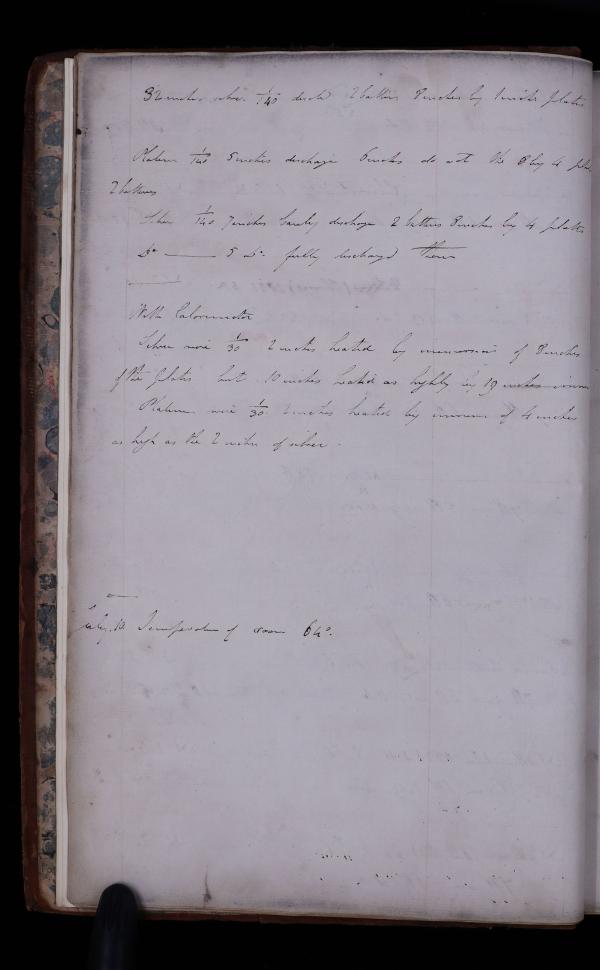 3 inches silver 1/140 disch 2 batteries 8 inches by 1 inch plates
Platina 1/140 5 inches discharge 6 inches do not the 8 by 4 pla
2 batteries
Silver 1/140 7 inches barely discharge 2 batteries 8 inches by 4 plates
Do —— 5 Do fully discharged them
With Calorimotor
Silver wire 1/30 2 inches heated by immersion of 8 inches
of the plates but 10 inches heated as highly by 19 inches
Platina wire 1/30 2 inches heated by immers of 4 inches
as high as the 2 inches of silver.
July. 10. Temperature of room 64°.